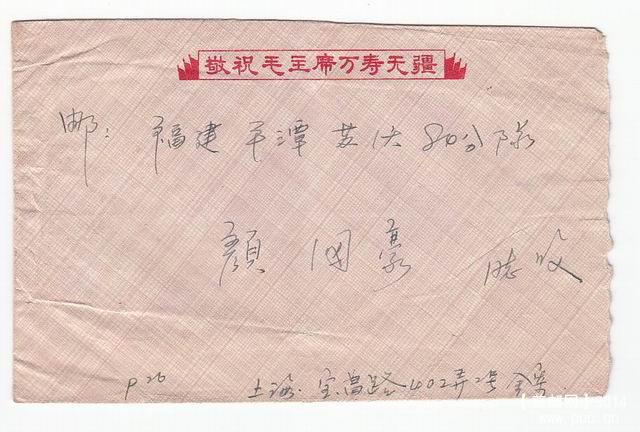 敬祝毛主席万寿无疆
邮: 福建平潭苏沃840分队
颜国豪 同志收
P26
上海.宝昌路402弄2号